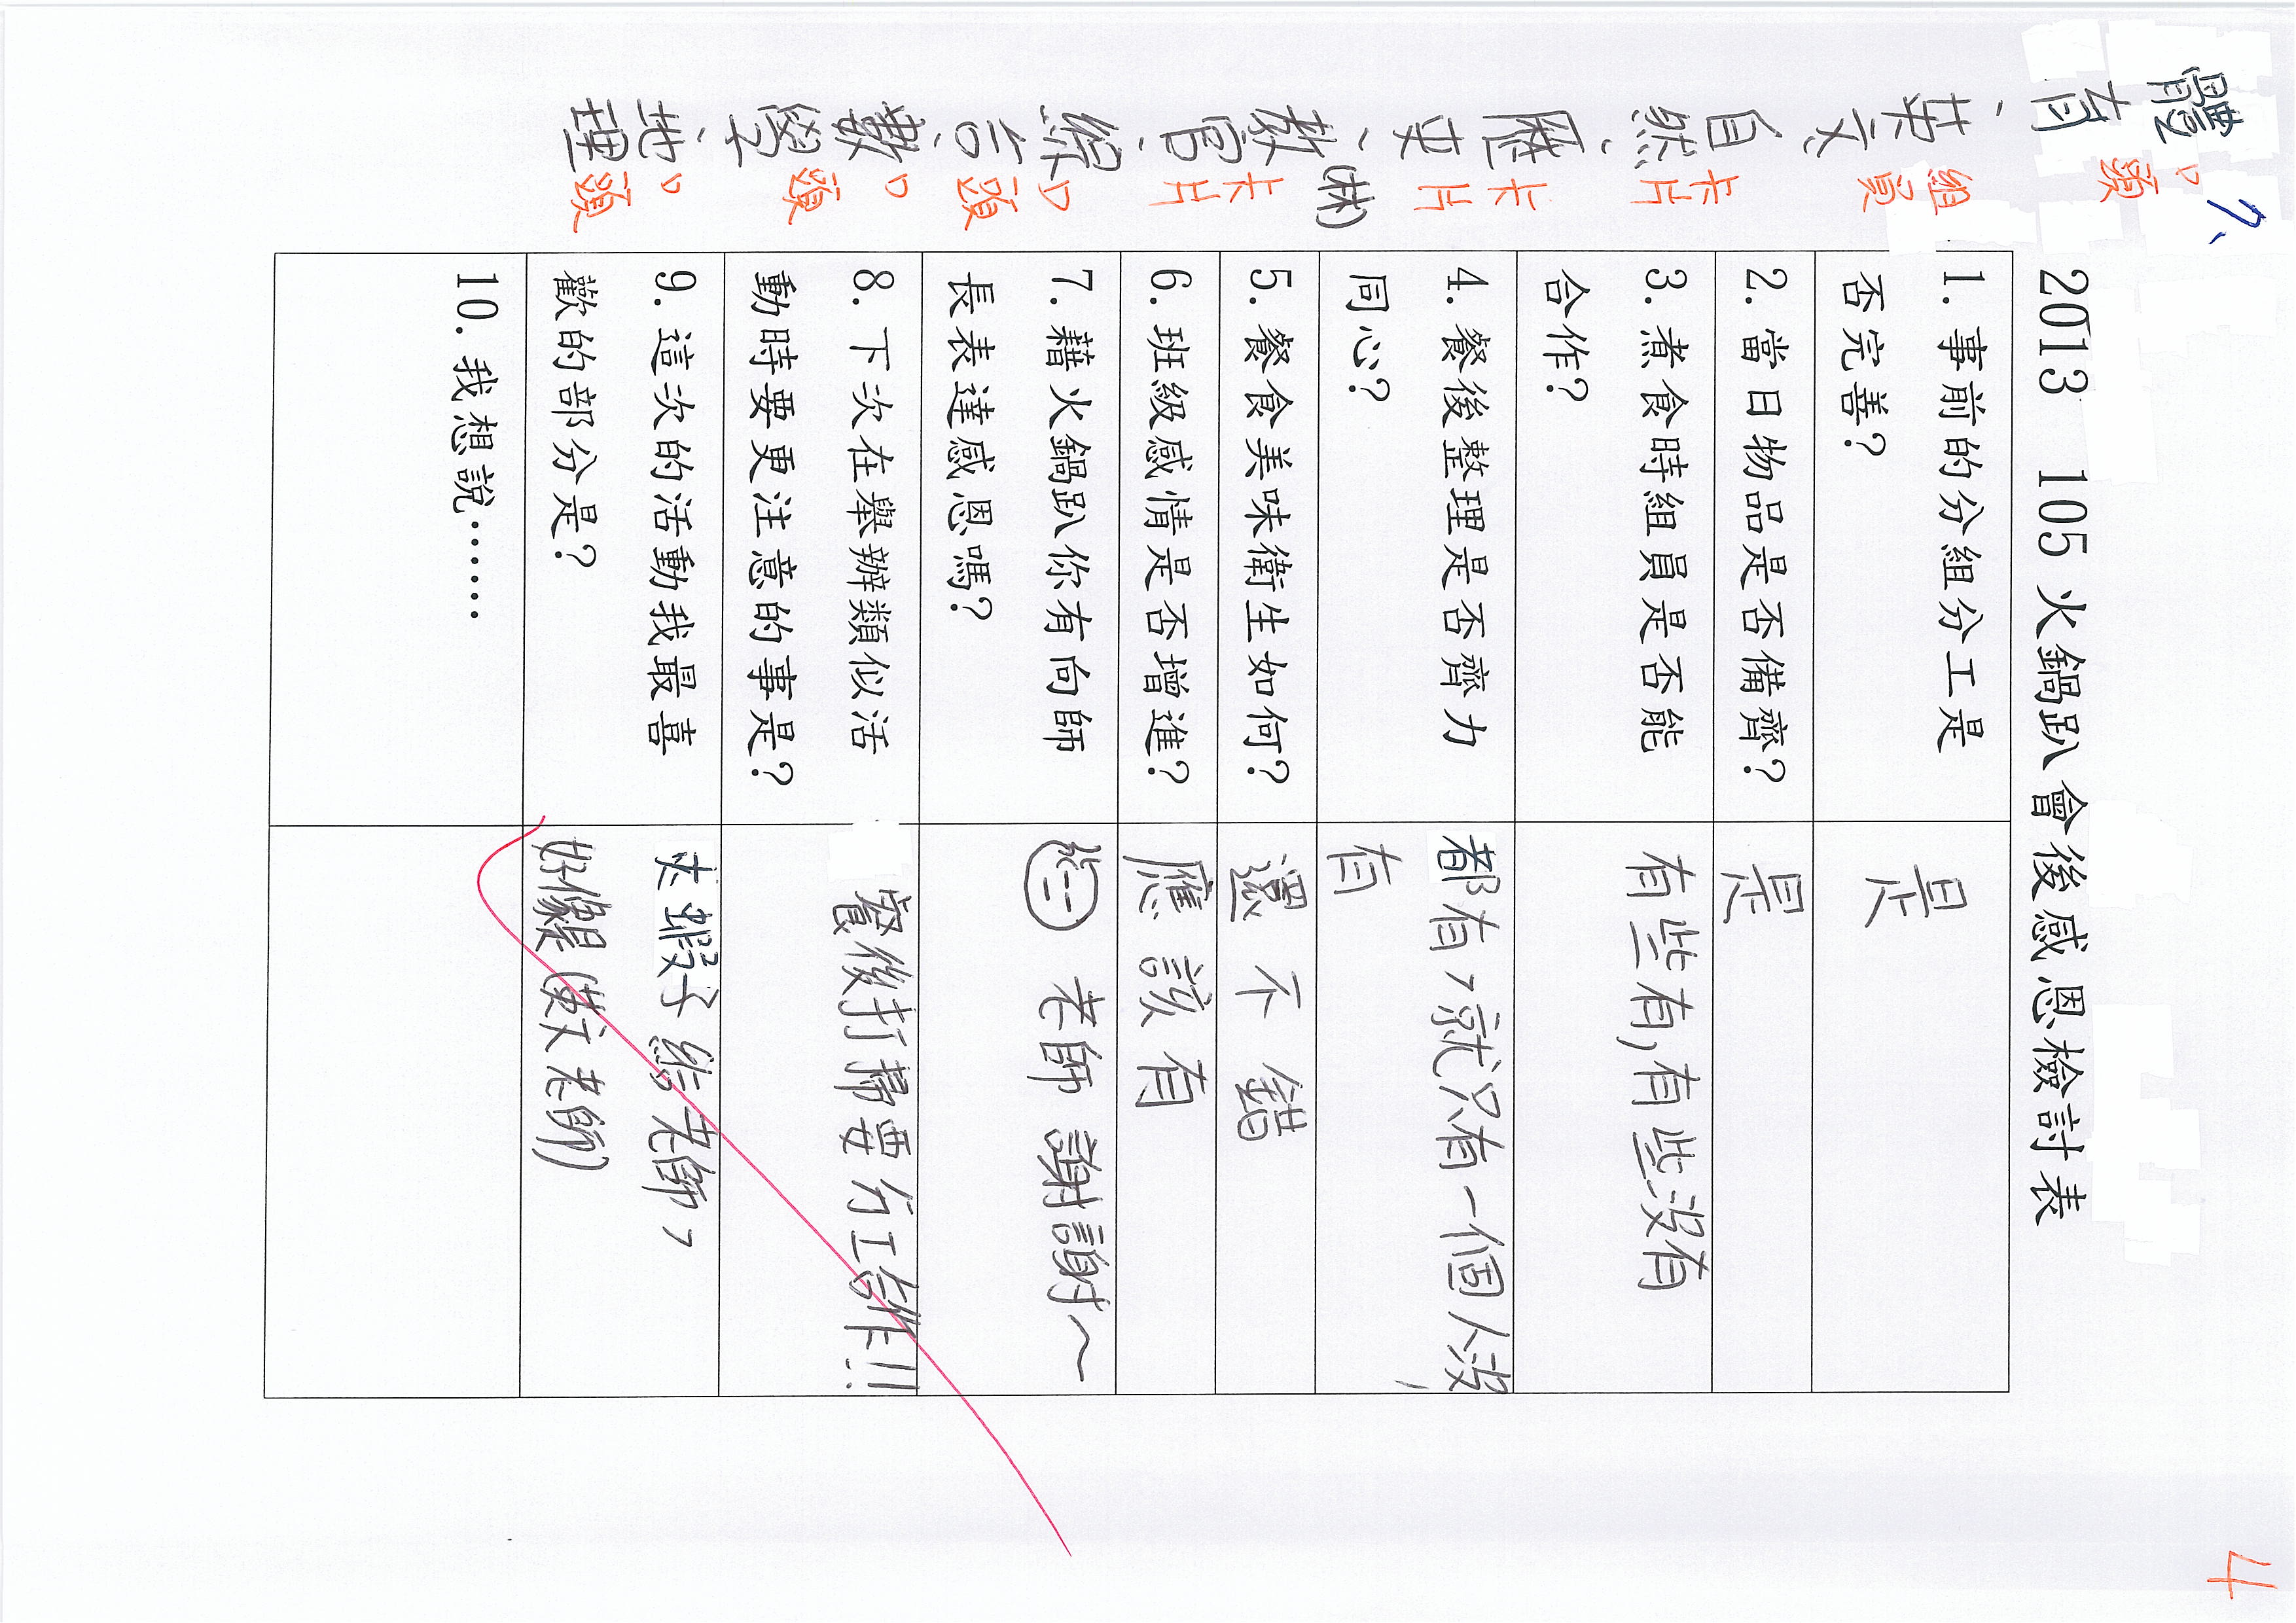 7、
體育、英文、自然、歷史、(林)教官、綜合、數學、地理
口頭 組員 卡片 卡片 卡片 口頭 口頭 口頭
2013 105火鍋趴會後感恩檢討表
1.事前的分組分工是
否完善?
是
2.當日物品是否備齊?
是
3.煮食時組員是否能
合作?
有些有,有些沒有
4.餐後整理是否齊力
同心?
都有,就只有一個人沒
有
5.餐食美味衛生如何?
還不錯
6.班級感情是否增進?
應該有
7.藉火鍋趴你有向師
長表達感恩嗎?
老師 謝謝~
8.下次在舉辦類似活
動時要更注意的事是?
餐後打掃要分工合作!!
9.這次的活動我最喜
歡的部分是?
夾蝦子給老師,
好像是(英文老師)
10.我想說.......
4